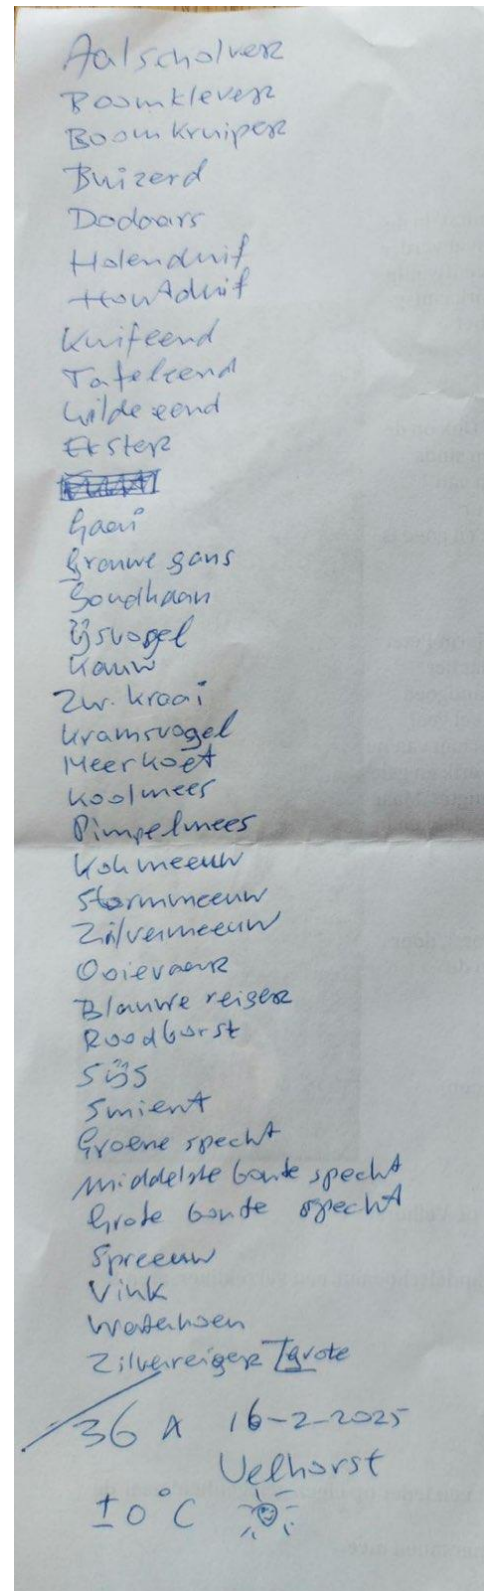 Aalscholver
Boomklever
Boomkruiper
Buizerd
Dodaars
Holenduif
Houtduif
Kuifeend
Tafeleend
Wilde eend
Ekster
Gaai
Grauwe gans
Goudhaan
IJsvogel
Kauw
Zw. kraai
Kramsvogel
Meerkoet
Koolmees
Pimpelmees
Kokmeeuw
Stormmeeuw
Zilvermeeuw
Ooievaar
Blauwe reiger
Roodborst
Sijs
Smient
Groene specht
Middelste bonte specht
Grote bonte specht
Spreeuw
Vink
Waterhoen
Zilverreiger grote
36 x 16-2-2025
Velhorst
± 0 °C